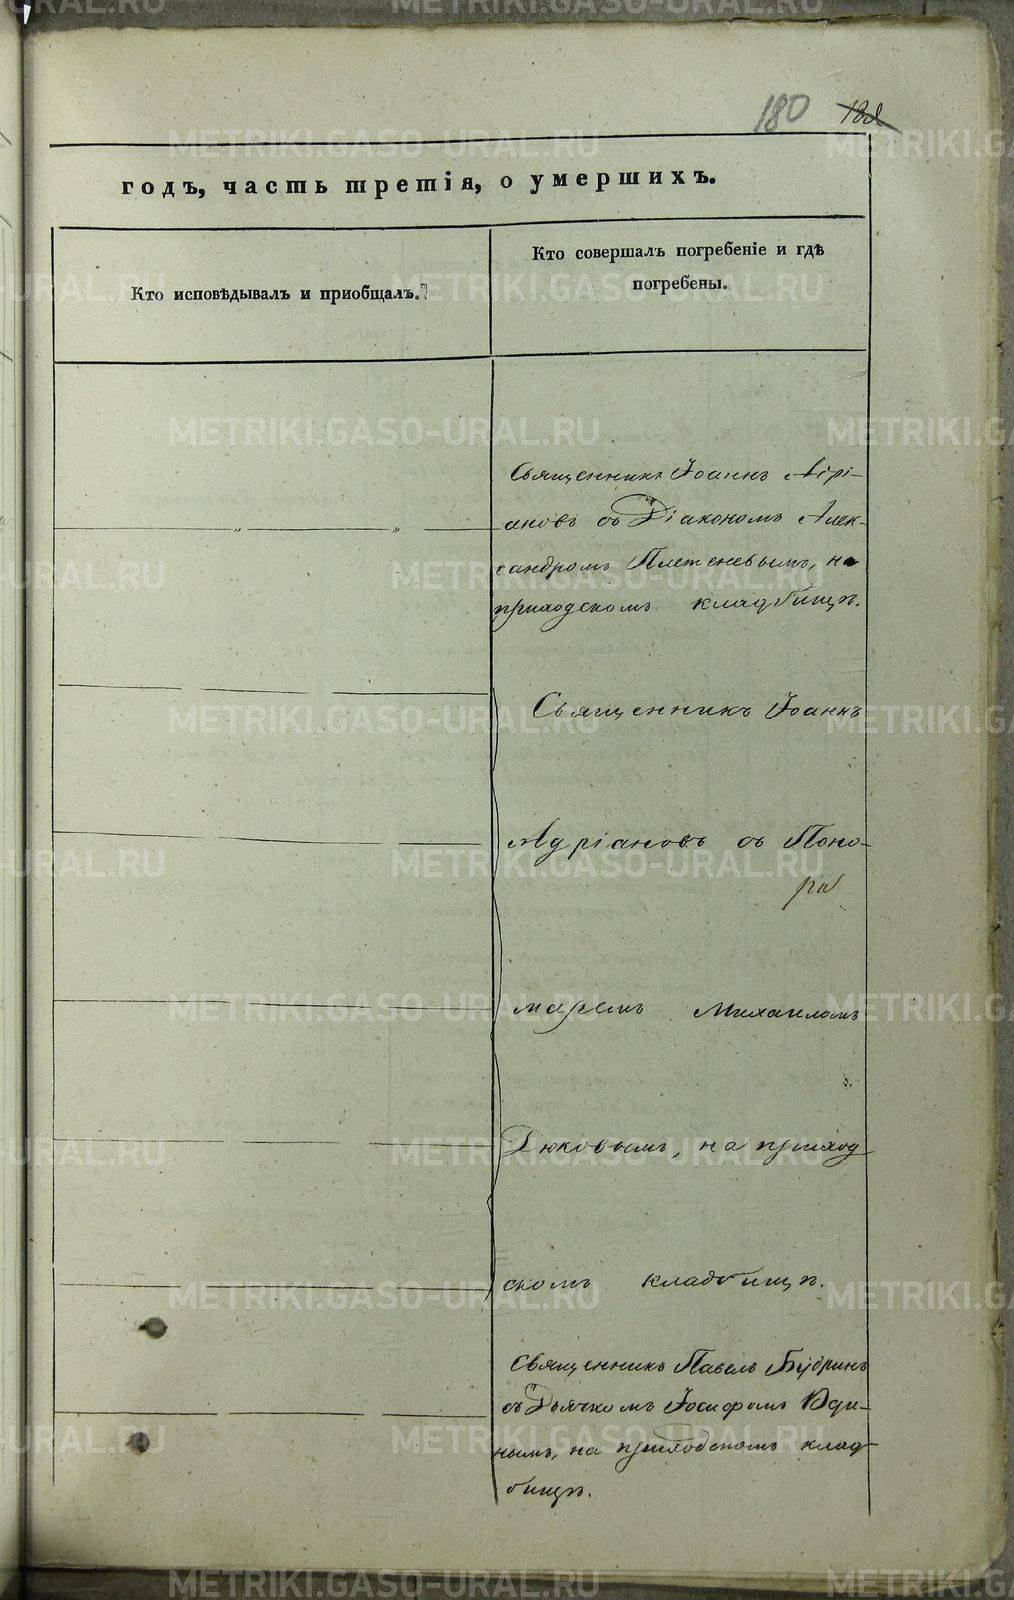 180
годъ, часть третія, о умершихъ.
Кто исповѣдывалъ и пріобщалъ.
Кто совершалъ погребеніе и гдѣ
погребены.
Священникъ Іоаннъ Адрі-
ановъ съ Діакономъ Алек-
сандромъ Плетеневымъ, на
приходскомъ кладбищѣ.
Священникъ Іоаннъ
Адріановъ съ Поно-
маремъ Михаиломъ
Дюковымъ, на приход
скомъ кладбищѣ.
Священникъ Павелъ Будринъ
съ Дьячкомъ Іосифомъ
нымъ, на приходскомъ клад-
бищѣ.
METRIKI.GASO-URAL.RU